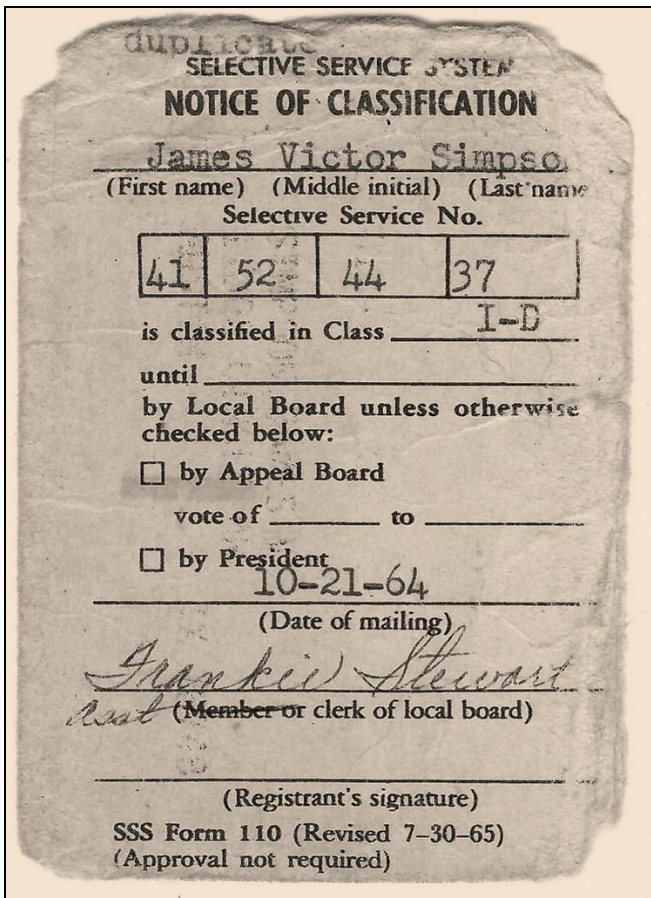 duplicate
SELECTIVE SERVICE SYSTEM
NOTICE OF CLASSIFICATION
James Victor Simpso
(First name) (Middle initial) (Last name
Selective Service No.
41 52 44 37
is classified in Class I-D
until
by Local Board unless otherwise
checked below:
☐ by Appeal Board
vote of ________ to ________
☐ by President
10-21-64
(Date of mailing)
Frankie Stewart
asst (Member or clerk of local board)
(Registrant's signature)
SSS Form 110 (Revised 7-30-65)
(Approval not required)